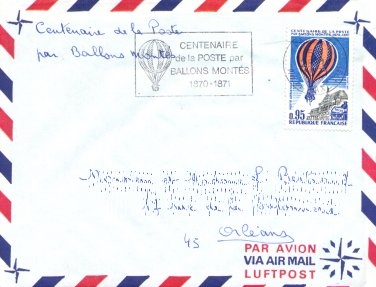 Centenaire de la Poste
par Ballons montés
CENTENAIRE
de la POSTE par
BALLONS MONTÉS
1870-1871
CENTENAIRE DE LA POSTE
PAR BALLONS MONTÉS, 1870-1971
0,95
RÉPUBLIQUE FRANÇAISE
45 Orléans
PAR AVION
VIA AIR MAIL
LUFTPOST